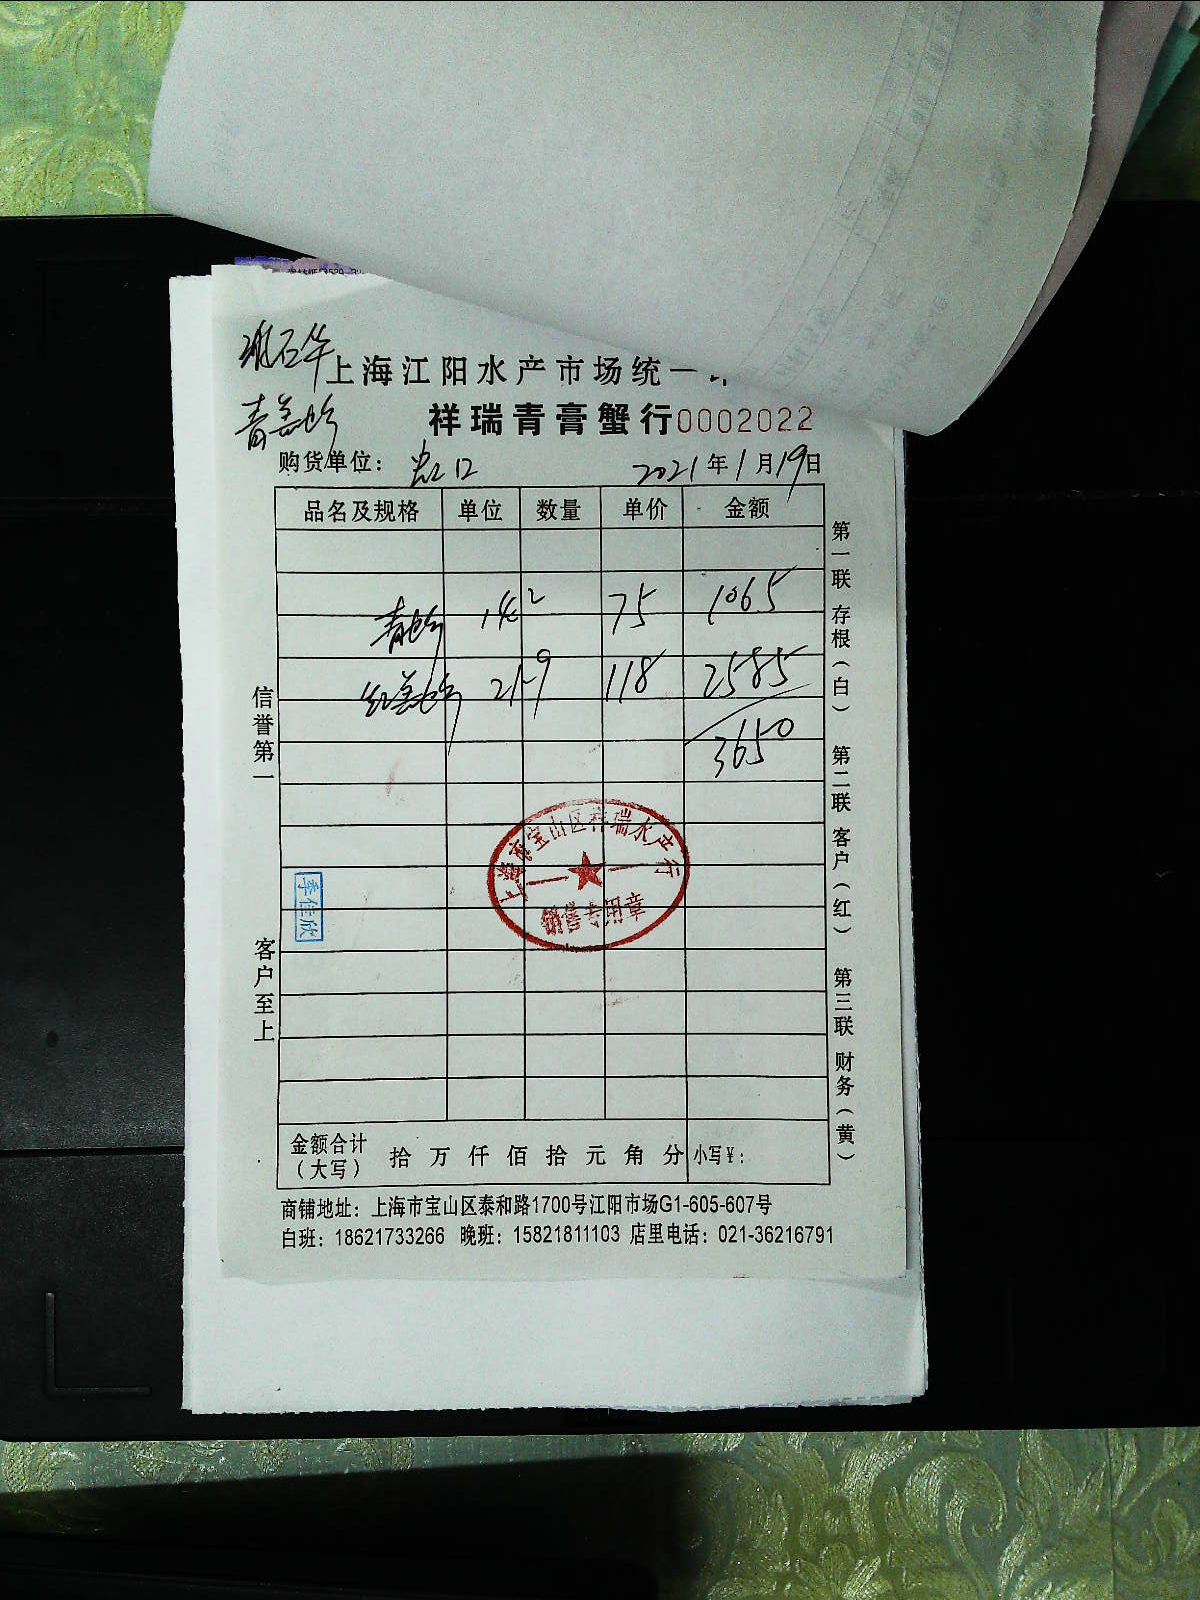 上海江阳水产市场统一
青膏蟹
祥瑞青膏蟹行0002022
购货单位：虹口 2021年1月19日
品名及规格 单位 数量 单价 金额
青蟹 14.2 75 1065
红膏蟹 21.9 118 2585
3650
信誉第一
客户至上
第一联 存根（白） 第二联 客户（红） 第三联 财务（黄）
上海市宝山区祥瑞水产行
季佳欣
金额合计（大写） 拾 万 仟 佰 拾 元 角 分 小写¥：
商铺地址：上海市宝山区泰和路1700号江阳市场G1-605-607号
白班：18621733266 晚班：15821811103 店里电话：021-36216791